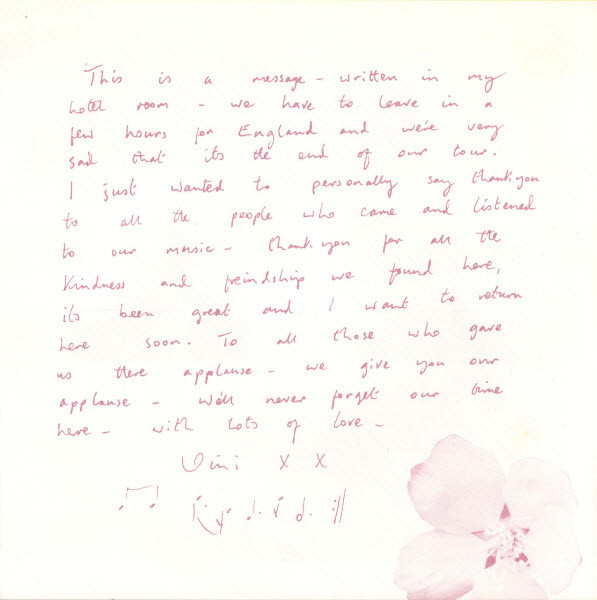 This is a message - written in my
hotel room - we have to leave in a
few hours for England and we're very
sad that its the end of our tour.
I just wanted to personally say thankyou
to all the people who came and listened
to our music - thankyou for all the
kindness and freindship we found here,
its been great and I want to return
here soon. To all those who gave
us there applause - we give you our
applause - we'll never forget our time
here - with lots of love -
Vini X X